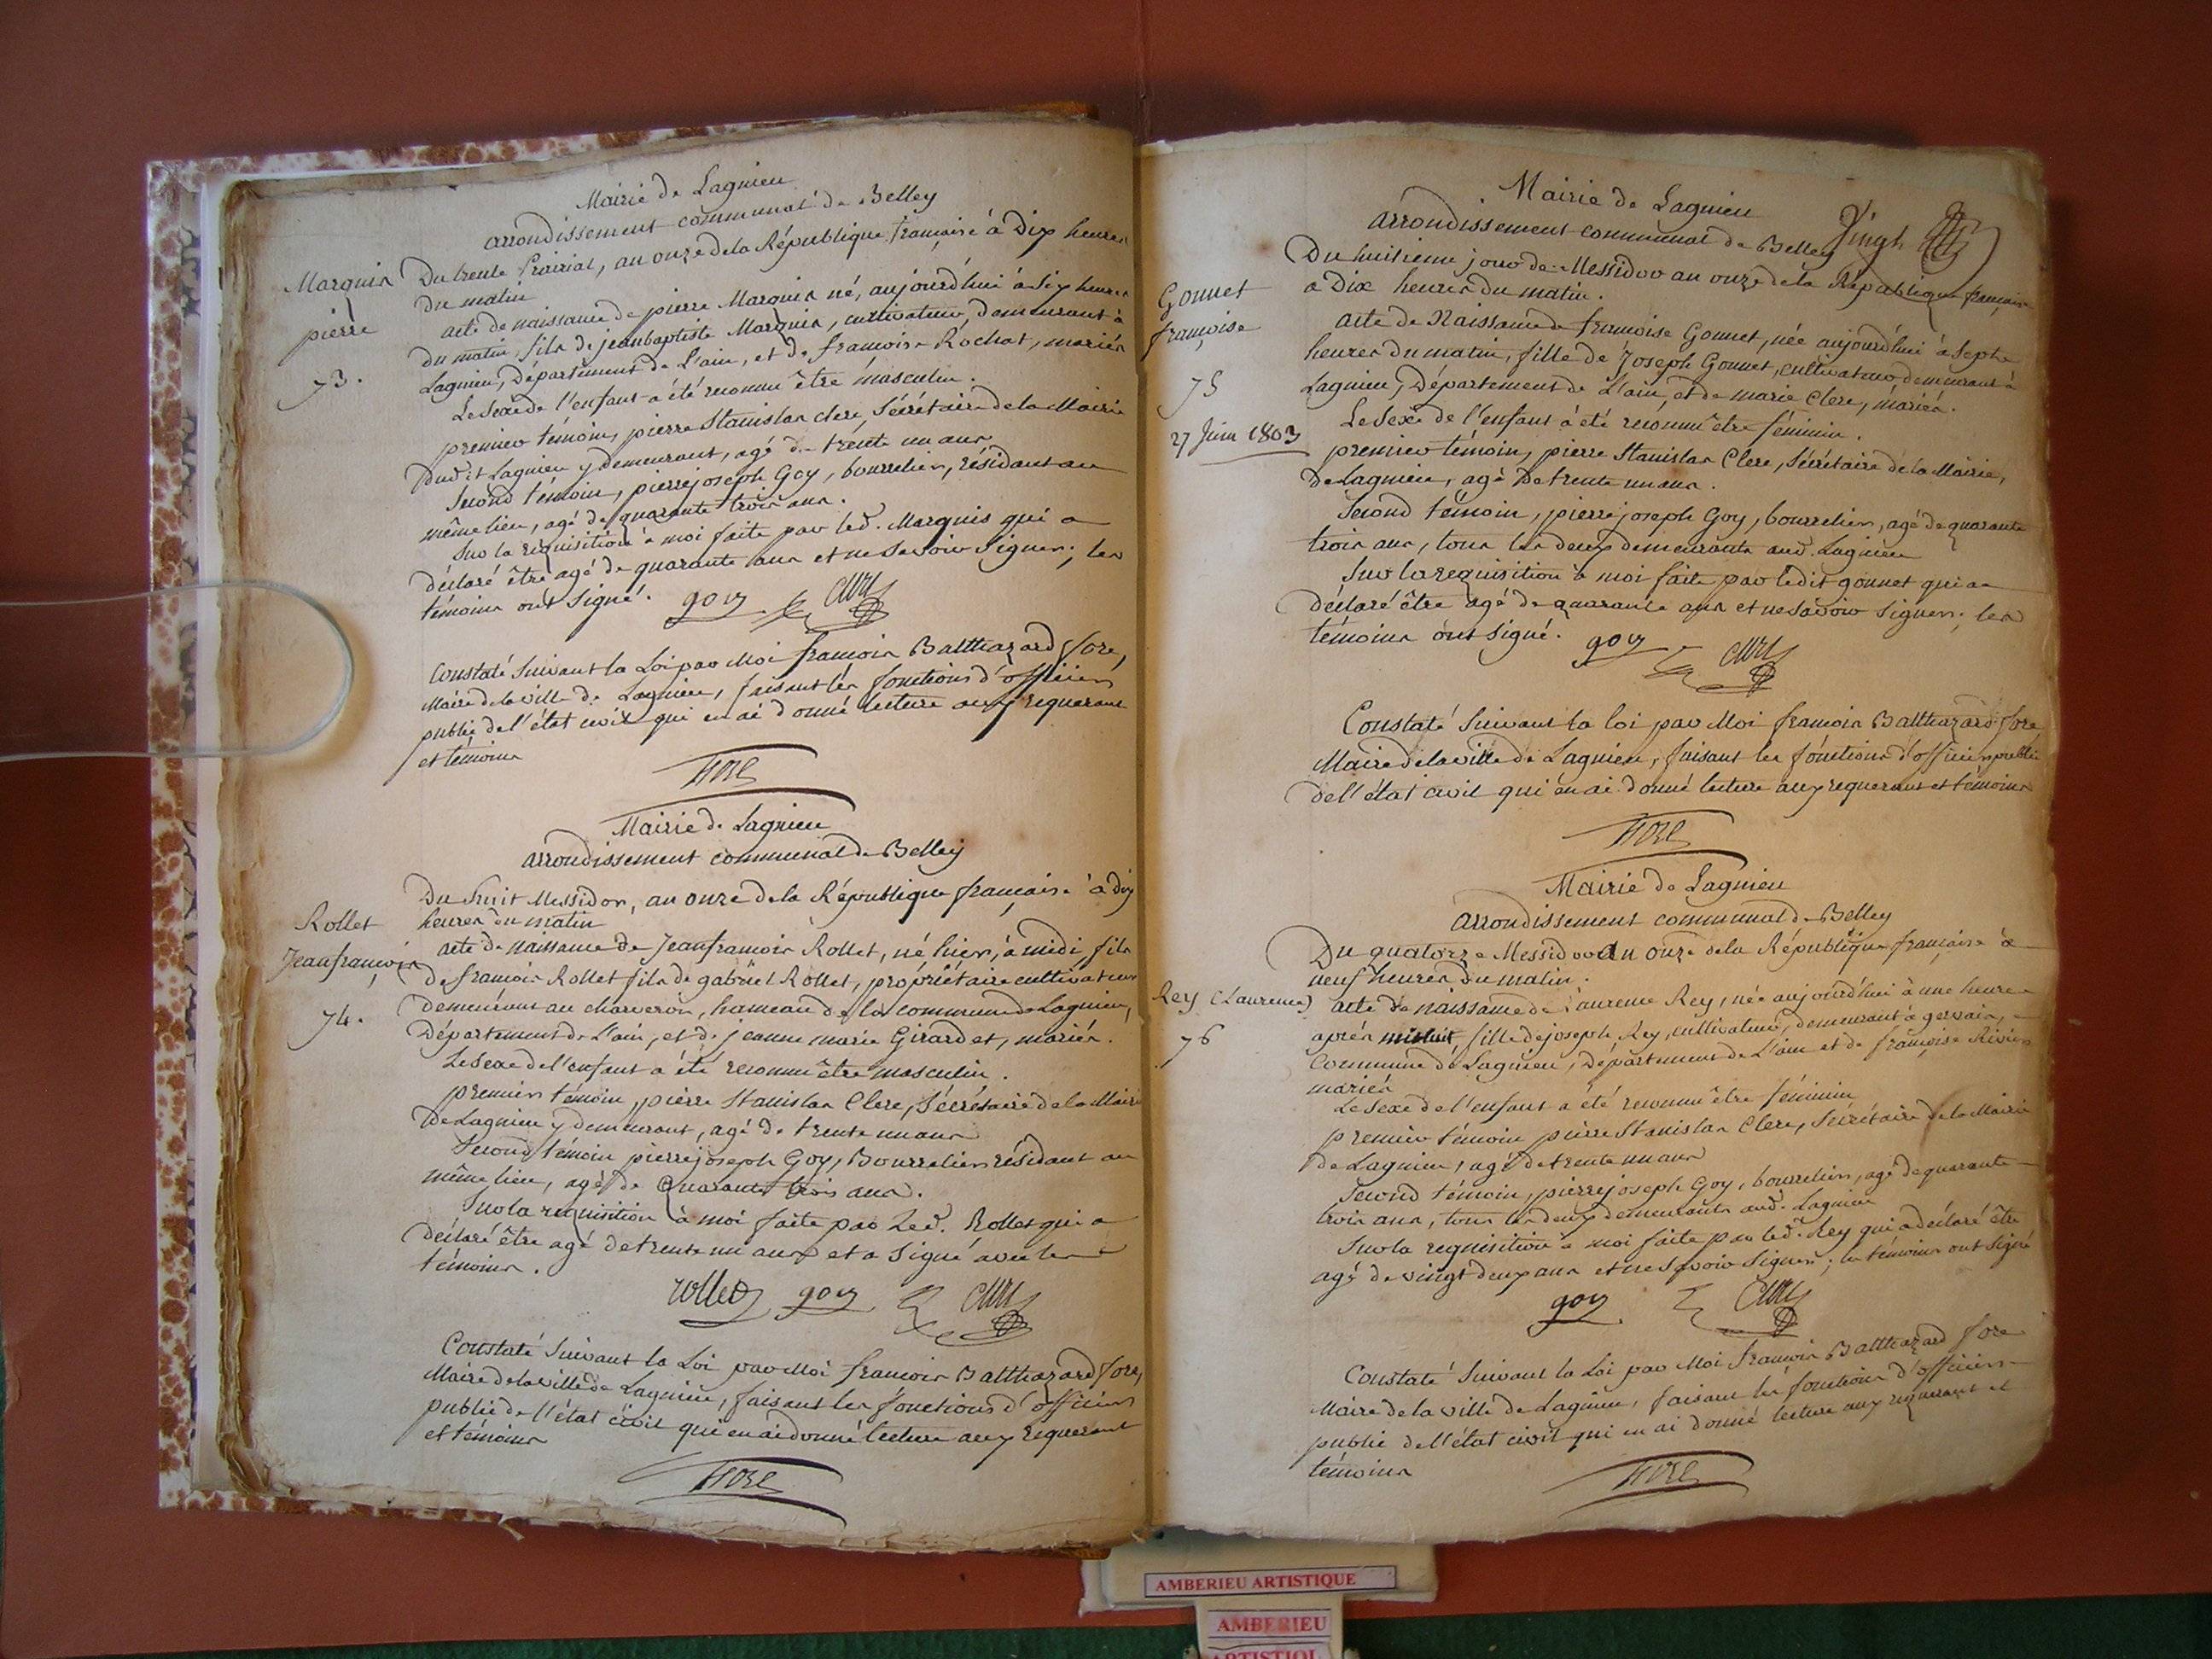 Mairie de Lagnieu
arrondissement communal de Belley
Marquis
pierre
73.
Du trente Prairial, an onze de la République française à Dix heures
Du matin
acte de naissance de pierre Marquis né, aujourd'hui à Six heures
Du matin, fils de jeanbaptiste Marquis, cultivateur, demeurant à
Lagnieu, Département de L'ain, et de francoise Rochat, mariés
Le Sexe de l'enfant a été reconnu être masculin.
premier témoin, pierre Stanislas clere, Sécrétaire de la Mairie
Dudit Lagnieu y demeurant, agé de trente un ans
Second témoin, pierre joseph Goy, bourrelier, résidant au
même lieu, agé de quarante trois ans.
Sur la réquisition à moi faite par led. Marquis qui a
Déclaré être agé de quarante ans et ne Savoir Signer; les
témoins ont Signé.
goy
Constaté Suivant la Loi par Moi francois Balthazard fore,
Maire de la ville de Lagnieu, faisant les fonctions d'officier
public de l'état civil qui en ai donné lecture aux requerant
et témoins
fore
Mairie de Lagnieu
arrondissement communal de Belley
Rollet
Jeanfrançois
74.
Du huit Messidor, an onze de la République française à dix
heures du matin
acte de naissance de Jeanfrancois Rollet, né hier, à midi, fils
de francois Rollet fils de gabriel Rollet, propriétaire cultivateur
demeurant au charveron, hameau de la commune de Lagnieu,
Département de L'ain, et de jeanne marie Girardet, mariés.
Le Sexe de l'enfant a été reconnu être masculin.
premier témoin, pierre Stanislas Clere, Sécrétaire de la Mairie
de Lagnieu y demeurant, agé de trente un ans
Second témoin pierre joseph Goy, Bourrelier résidant au
même lieu, agé de Quarante trois ans.
Sur la requisition à moi faite par Led. Rollet qui a
Déclaré être agé de trente un ans et a Signé avec les
témoins.
rollet goy
Constaté Suivant la Loi par Moi francois Balthazard fore,
Maire de la ville de Lagnieu, faisant les fonctions d'officier
public de l'état civil qui en ai donné lecture aux requerant
et témoins
fore
Mairie de Lagnieu
arrondissement communal de Belley
Gonnet
françoise
75
27 Juin 1803
Du huitieme jour de Messidor an onze de la République française
a Dix heures du matin.
acte de Naissance de francoise Gonnet, née aujourd'hui à Sept
heures du matin, fille de Joseph Gonnet, cultivateur demeurant à
Lagnieu, Département de L'ain, et de marie Clere, mariés.
Le Sexe de l'enfant à été reconnu être féminin.
premier témoin, pierre Stanislas Clere, Sécrétaire de la Mairie,
De Lagnieu, agé de trente un ans.
Second témoin, pierre joseph Goy, bourrelier, agé de quarante
trois ans, tous les deux demeurants aud. Lagnieu
Sur la requisition à moi faite par ledit gonnet qui a
Déclaré être agé de quarante ans et ne Savoir Signer; les
témoins ont Signé.
goy
Constaté Suivant la loi par Moi francois Balthazard fore
Maire de la ville de Lagnieu, faisant les fonctions d'officier public
de l'état civil qui en ai donné lecture aux requerant et témoins
fore
Mairie de Lagnieu
arrondissement communal de Belley
Rey (Laurence)
76
Du quatorze Messidor an onze de la République française à
neuf heures du matin.
acte de naissance de Laurence Rey, née aujourd'hui à une heure
après minuit, fille de joseph Rey, cultivateur, demeurant à gervais,
Commune de Lagnieu, Département de L'ain et de françoise
mariés
Le Sexe de l'enfant a été reconnu être féminin
premier témoin pierre Stanislas Clere, Sécrétaire de la Mairie
de Lagnieu, agé de trente un ans
Second témoin, pierre joseph Goy, bourrelier, agé de quarante
trois ans, tous les deux demeurants aud. Lagnieu
Sur la requisition à moi faite par led. Rey qui a déclaré être
agé de vingt deux ans et ne Savoir Signer; les témoins ont Signé
goy
Constaté Suivant la Loi par Moi francois Balthazard fore
Maire de la ville de Lagnieu, faisant les fonctions d'officier
public de l'état civil qui en ai donné lecture aux requerant et
témoins
fore
AMBERIEU ARTISTIQUE
AMBERIEU
ARTISTIQUE